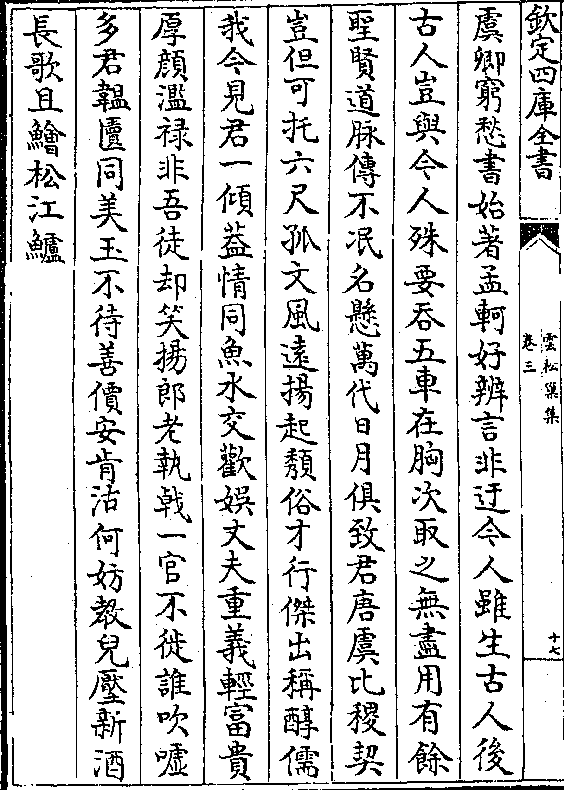 欽定四庫全書
雲松巢集
卷三
十七
虞卿窮愁書始著孟軻好辨言非迂今人雖生古人後
古人豈與今人殊要吞五車在胸次取之無盡用有餘
聖賢道脉傳不泯名懸萬代日月俱致君唐虞比稷契
豈但可托六尺孤文風遠揚起頽俗才行傑出稱醇儒
我今見君一傾葢情同魚水交歡娛丈夫重義輕富貴
厚顔濫禄非吾徒却笑揚郎老執戟一官不徙誰吹嘘
多君韞匵同美玉不待善價安肯沽何妨教兒壓新酒
長歌且鱠松江鱸